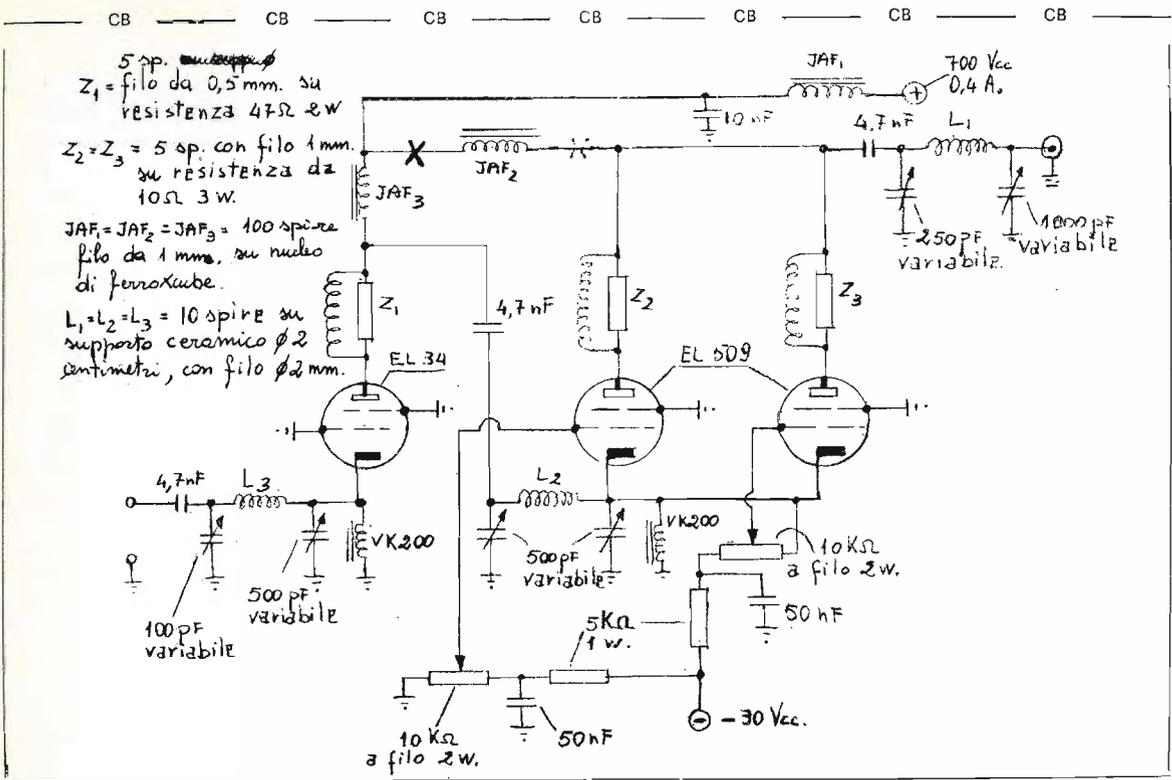 CB CB CB CB CB CB
5 sp.
Z1 = filo da 0,5 mm. su
resistenza 47Ω 2W
Z2=Z3 = 5 sp. con filo 1mm.
su resistenza da
10Ω 3W.
JAF1=JAF2=JAF3= 100 spire
filo da 1mm, su nucleo
di ferroxcube.
L1=L2=L3 = 10 spire su
supporto ceramico ϕ2
centimetri, con filo ϕ2mm.
JAF1
700 Vcc
0,4 A.
10 nF
4,7nF
L1
JAF2
JAF3
250pF
variabile
1000pF
variabile
Z1
4,7nF
Z2
Z3
EL 34
EL 509
4,7nF
L3
L2
VK200
VK200
500pF
variabile
10KΩ
a filo 2w.
500pF
variabile
100pF
variabile
50nF
5KΩ
1w.
-30 Vcc.
10KΩ
a filo 2w.
50nF